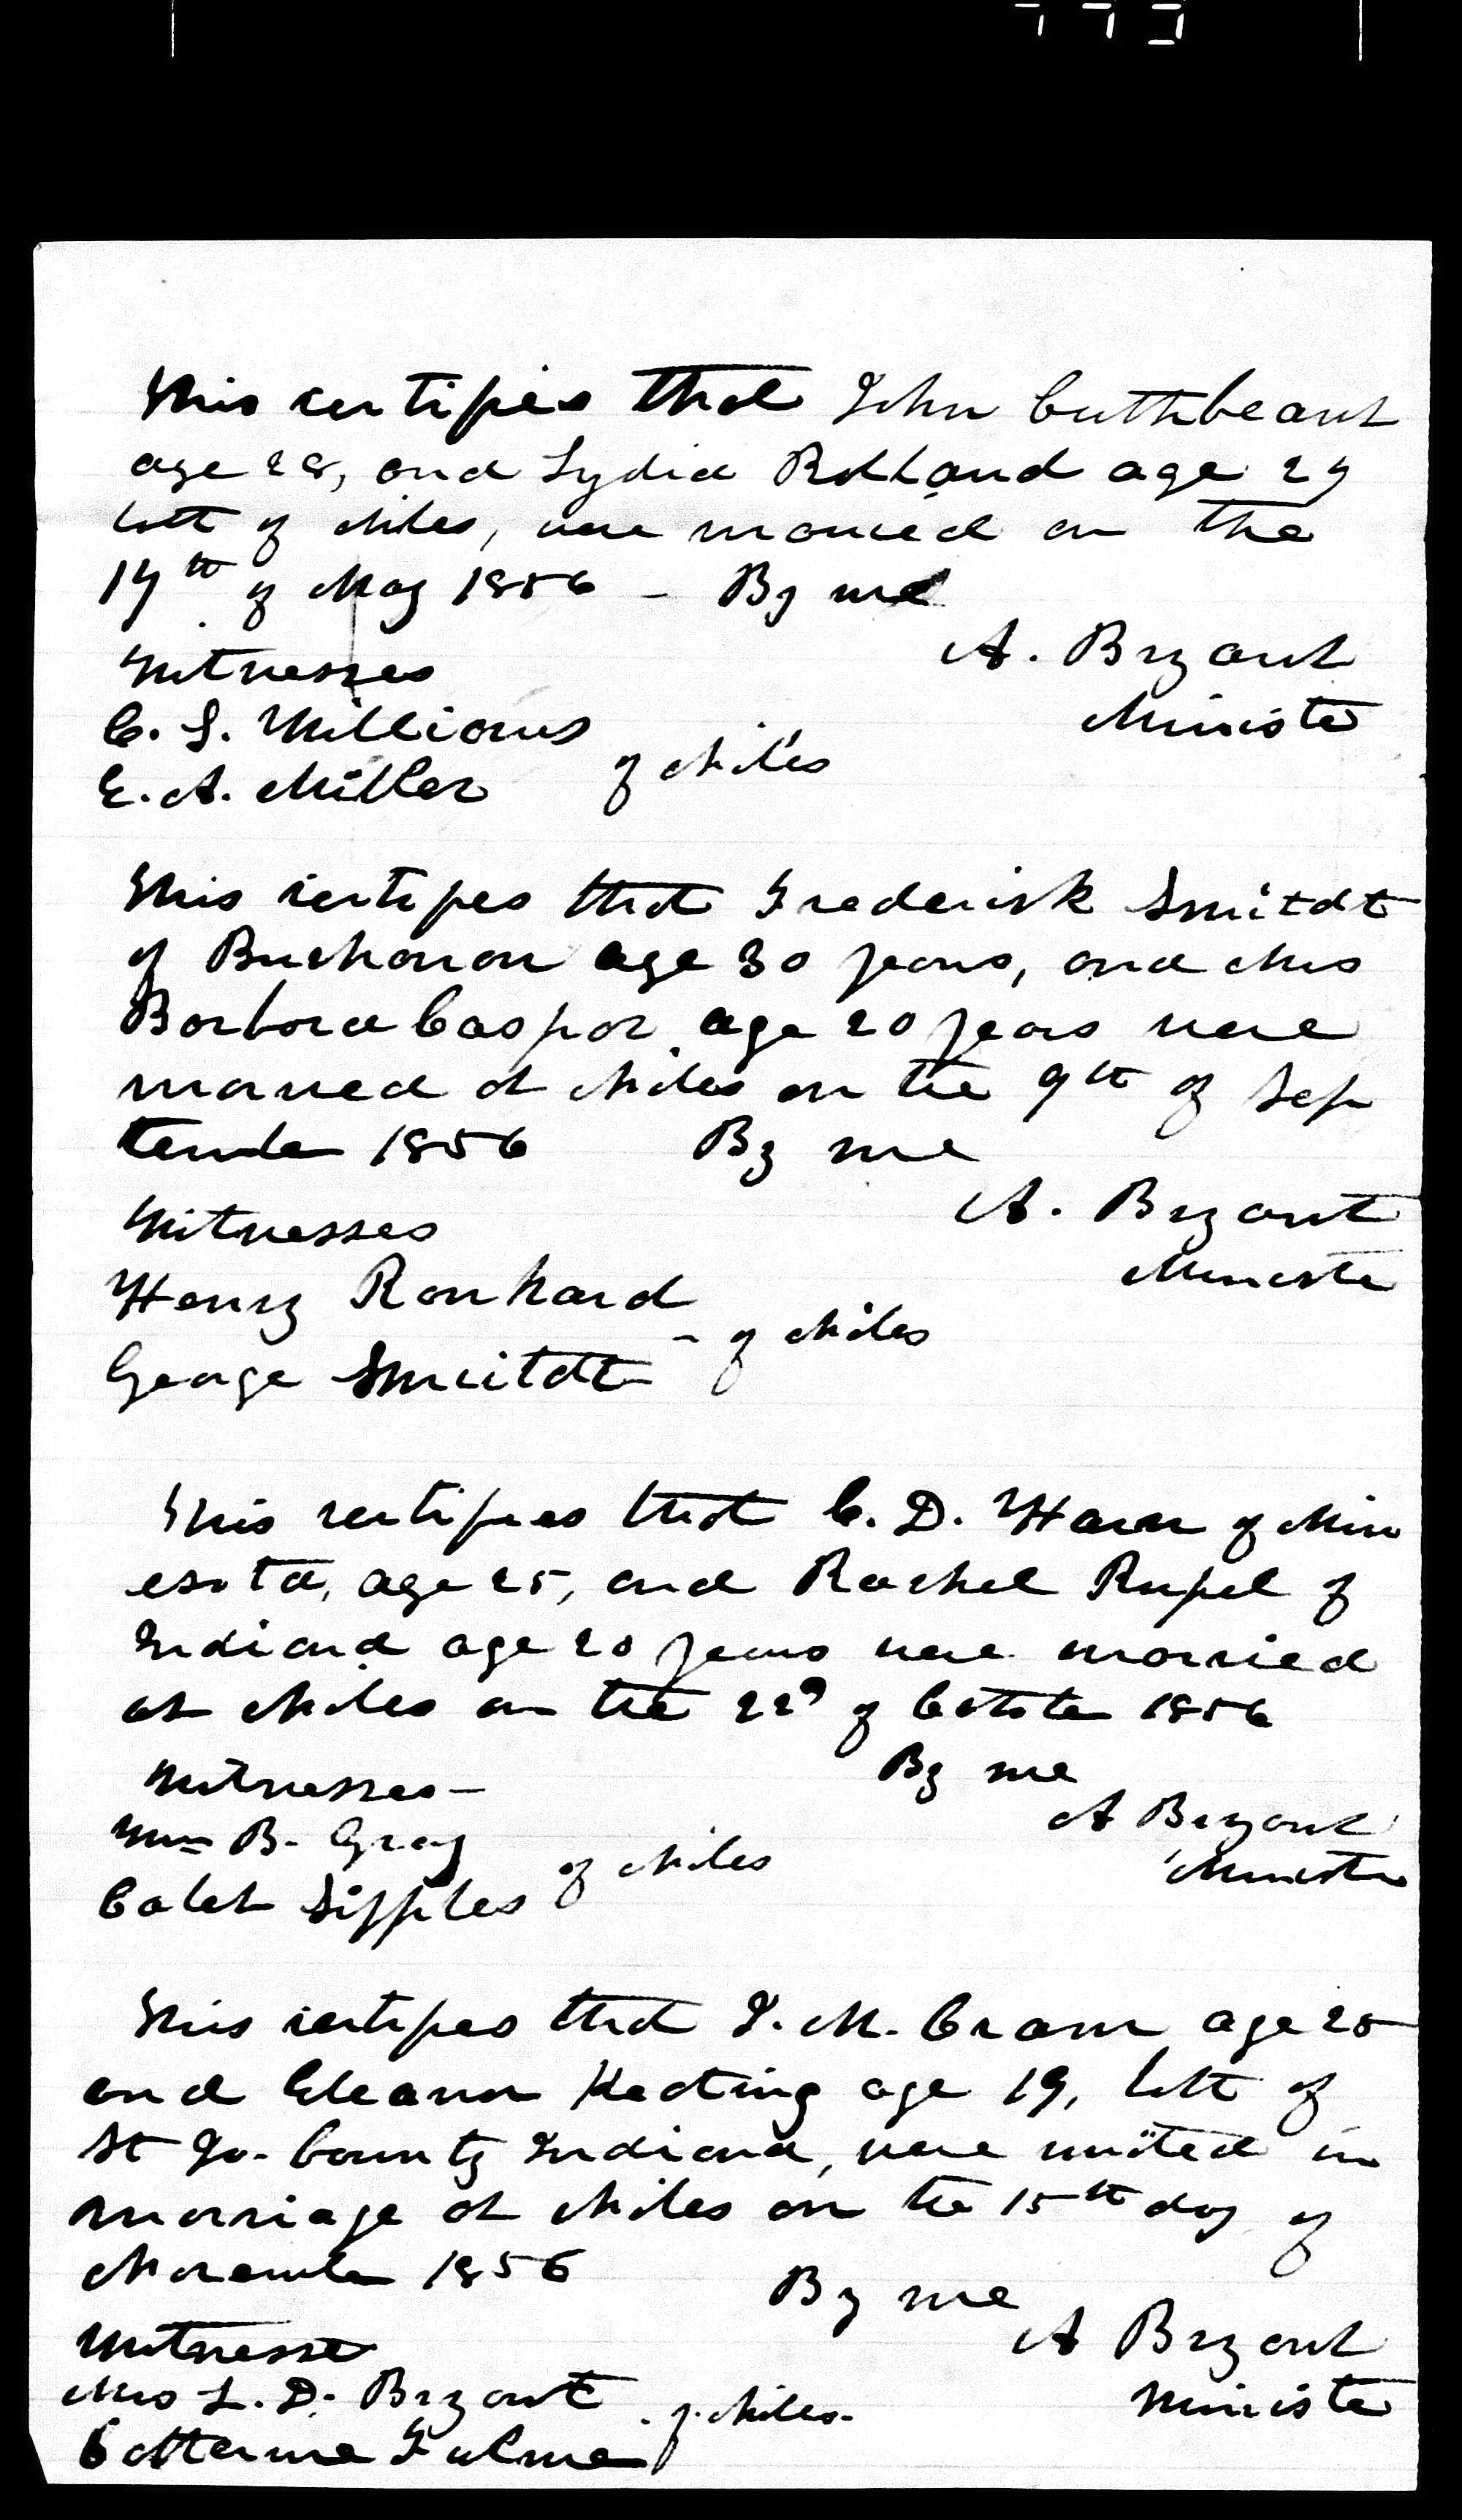 This certifies that John Cuthbeart
age 28, and Lydia Rolland age 29
both of Niles, were married on the
17th of May 1856 - By me
A. Bryant
Minister
Witnesses
C. S. Williams
E. A. Miller of Niles
This certifies that Frederick Smitdt
of Buchanan age 30 years, and Mis
Barbara Caspar age 20 years were
married at Niles on the 9th of Sep
tember 1856 By me
A. Bryant
Minister
Witnesses
Henry Ronhard
George Smitdt - of Niles
This certifies that C. D. Harn of Min
esota, age 25, and Rachel Rupel of
Indiana age 20 years were married
at Niles on the 22d of October 1856
By me
A Bryant
Minister
Witnesses-
Wm B. Gray
Caleb Sipples of Niles
This certifies that J. M. Cram age 25
and Eleanor Keating age 19, both of
St Jo. County Indiana, were united in
marriage at Niles on the 15th day of
November 1856
By me
A Bryant
Minister
Witnesses
Mrs L. D. Bryant of Niles-
Catterine